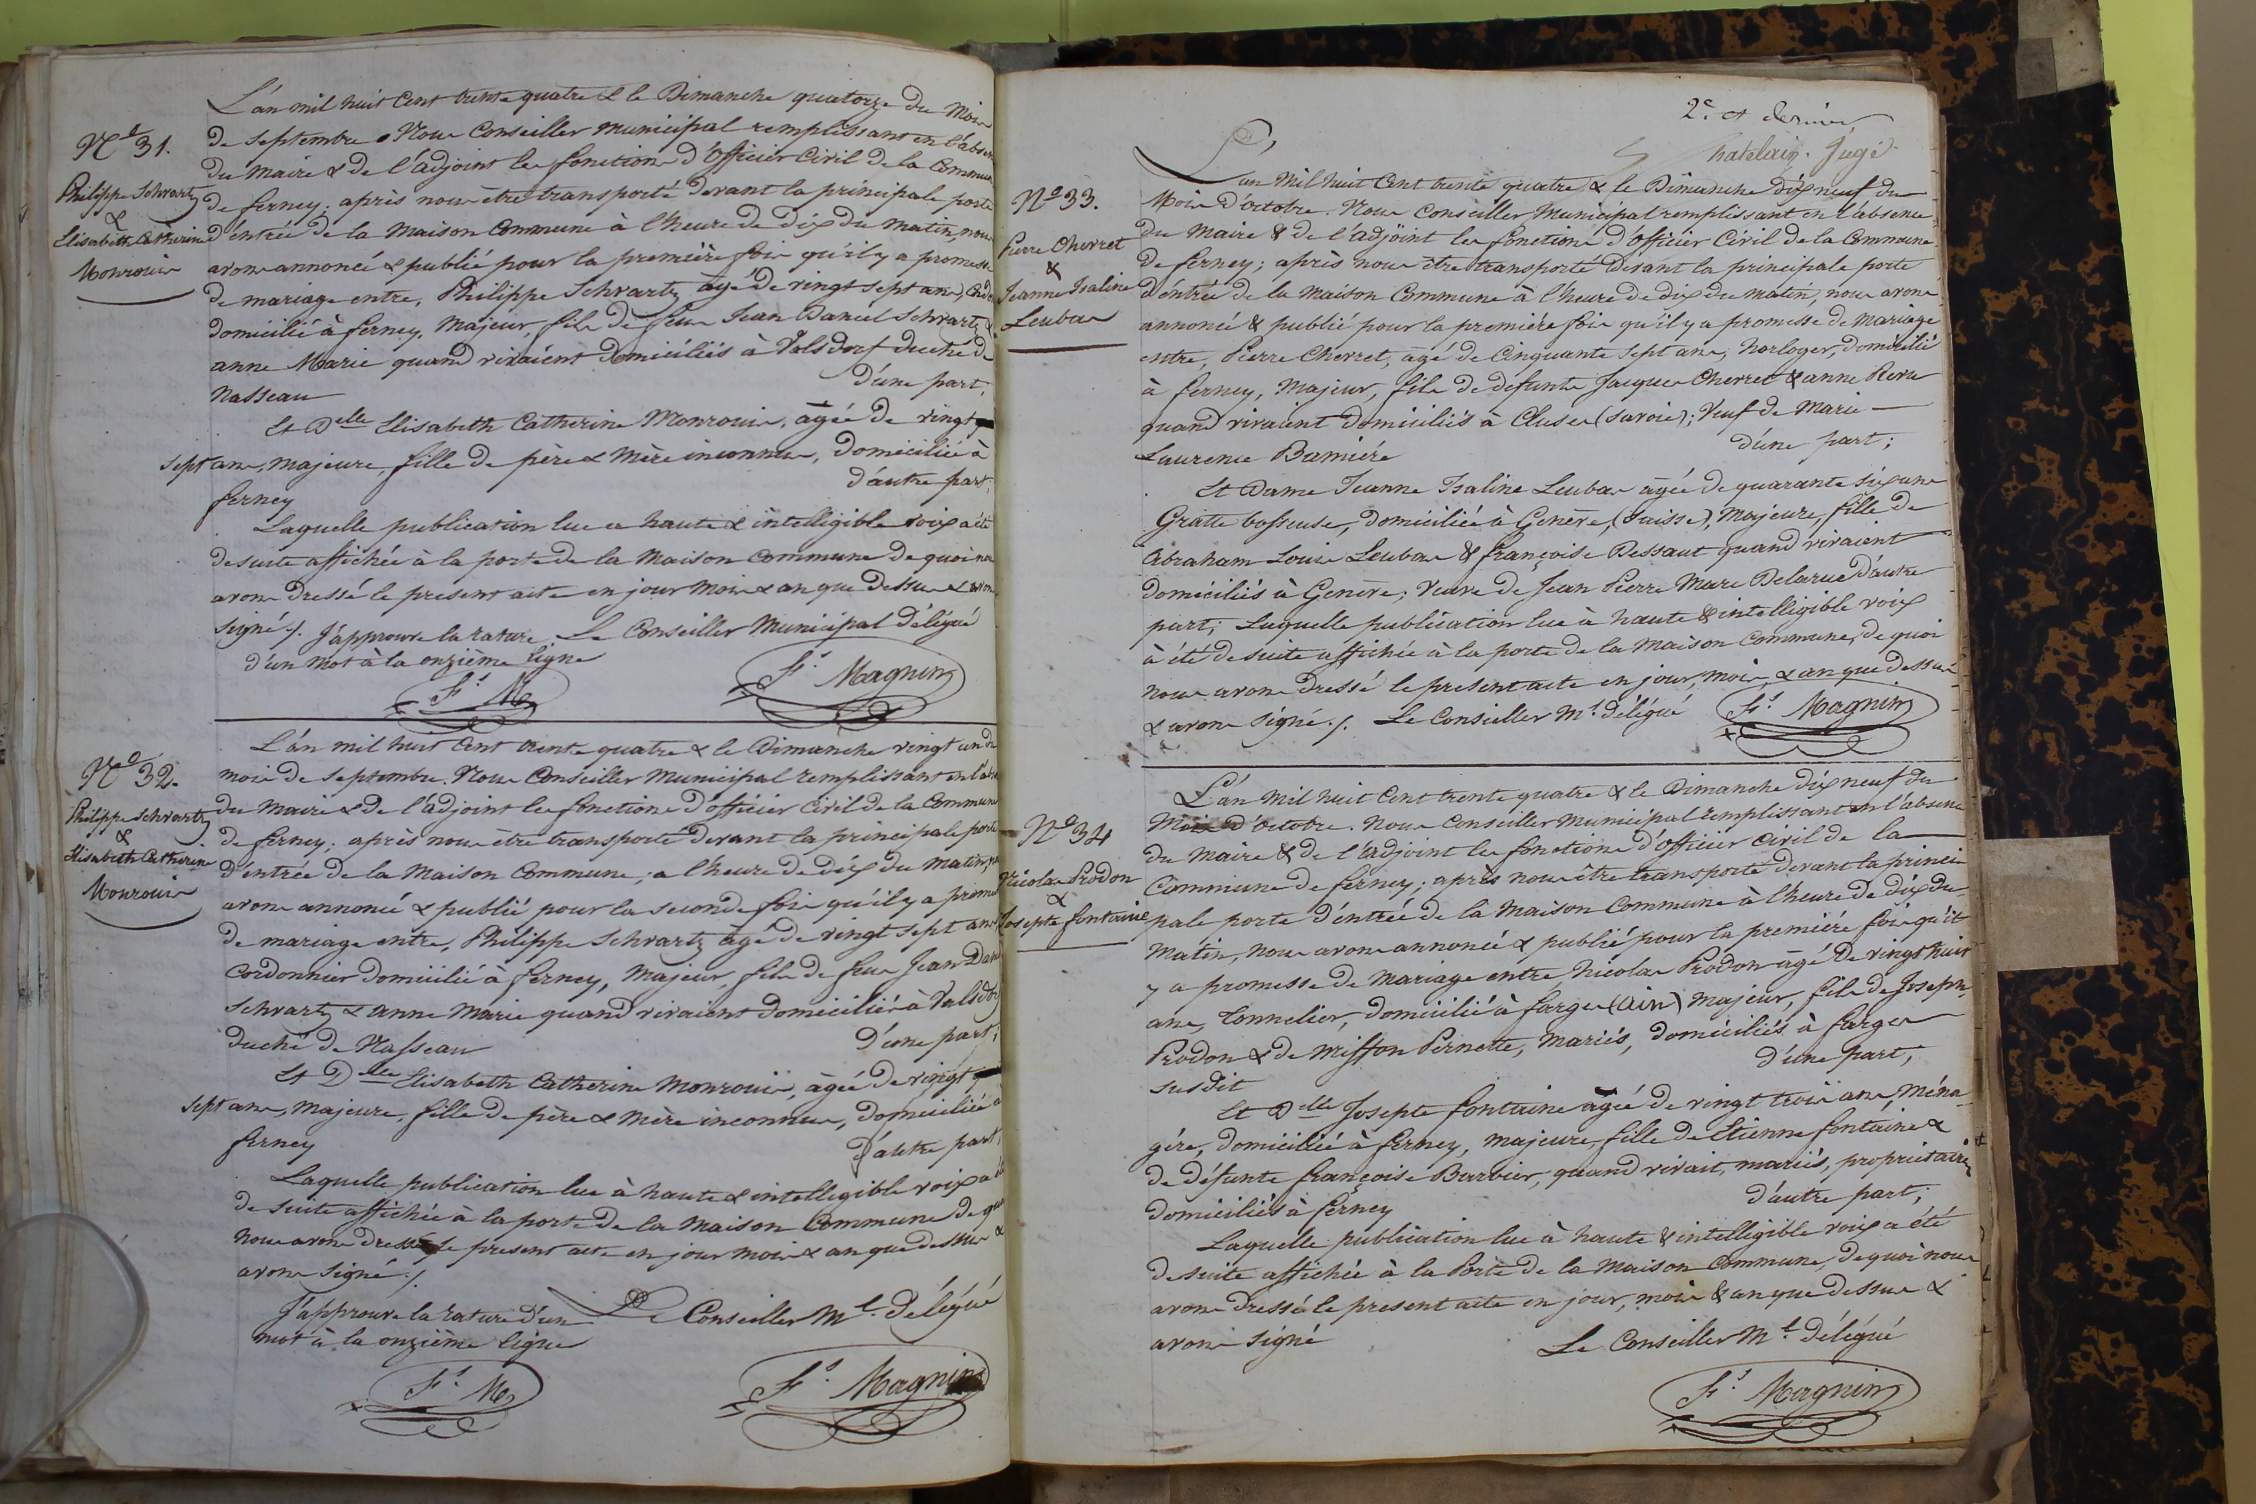 L'an mil huit Cent trente quatre & le Dimanche quatorze du Mois
Nº 31.
de Septembre. Nous Conseiller municipal remplissant en l'absen
du Maire & de l'adjoint les fonctions d'Officier Civil de la Commune
Philippe Schvartz
&
Elisabeth Catherine
Monrouis
de ferney; après nous être transporté devant la principale porte
d'entrée de la Maison Commune à l'heure de dix du matin, nous
avons annoncé & publié pour la première fois qu'il y a promesse
de mariage entre, Philippe Schvartz âgé de vingt sept ans,
domicilié à ferney, Majeur, fils de feus Jean Daniel Schvartz &
anne Marie quand vivaient domiciliés à Valsdorf duché de
Nasseau d'une part,
Et Delle Elisabeth Catherine Monrouis, âgée de vingt
sept ans, majeure, fille de père & mère inconnus, domiciliée à
ferney d'autre part,
Laquelle publication lue a haute & intelligible voix a été
de suite affichée à la porte de la Maison Commune de quoi nous
avons dressé le présent acte en jour mois & an que dessus & avons
signé ./. J'approuve la rature Le Conseiller Municipal Délégué
d'un mot à la onzième ligne
fs M. fs Magnin
L'an mil huit Cent trente quatre & le Dimanche vingt un du
Nº 32.
mois de Septembre. Nous Conseiller Municipal remplissant en l'abs
du Maire & de l'adjoint les fonctions d'officier Civil de la Commune
Philippe Schvartz
&
Elisabeth Catherine
Monrouis
de ferney; après nous être transporté devant la principale porte
d'entrée de la Maison Commune, a l'heure de dix du matin,
avons annoncé & publié pour la seconde fois qu'il y a promes
de mariage entre, Philippe Schvartz âgé de vingt sept ans
Cordonnier domicilié à ferney, Majeur, fils de feus Jean Dan
Schvartz & anne Marie quand vivaient domiciliés à Valsdorf
duché de Nasseau d'une part;
Et Delle Elisabeth Catherine Monrouis, âgée de vingt
sept ans, Majeure, fille de père & Mère inconnus, domiciliée à
ferney d'autre part,
Laquelle publication lue à haute & intelligible voix a
de suite affichée à la porte de la Maison Commune de quoi
nous avons dressé le present acte en jour mois & an que dessus &
avons signé ./.
J'approuve la rature d'un Le Conseiller Ml. Délégué
mot à la onzième ligne
fs M. fs Magnin
2e. et dernier
Chatelain. Jugé
L'an Mil huit Cent trente quatre & le Dimanche dix neuf du
Nº 33.
Mois d'octobre. Nous Conseiller Municipal remplissant en l'absence
du Maire & de l'adjoint les fonctions d'officier Civil de la Commune
Pierre Cherret
&
Jeanne Isaline
Leubas
de ferney; après nous être transporté devant la principale porte
d'entrée de la Maison Commune à l'heure de dix du matin, nous avons
annoncé & publié pour la première fois qu'il y a promesse de Mariage
entre, Pierre Cherret, âgé de Cinquante sept ans, horloger, domicilié
à ferney, Majeur, fils de défunts Jacques Cherret & anne
quand vivaient domiciliés à Cluses (Savoie); Veuf de Marie
Laurence d'une part;
Et Dame Jeanne Isaline Leubas âgée de quarante six ans
Gratte bosseuse, domiciliée à Genève, (Suisse), Majeure, fille de
Abraham Louis Leubas & françoise Dessaut quand vivaient
domiciliés à Genève; Veuve de Jean Pierre Marc Delarue d'autre
part; Laquelle publication lue à haute & intelligible voix
à été de suite affichée à la porte de la Maison Commune, de quoi
nous avons dressé le present acte en jour, mois, & an que dessus
& avons signé ./. Le Conseiller Ml. délégué fs Magnin
L'an Mil huit Cent trente quatre & le Dimanche dix neuf du
Mois d'octobre. Nous Conseiller Municipal remplissant en l'absence
Nº 34
du Maire & de l'adjoint les fonctions d'officier Civil de la
Nicolas Prodon
&
Josepte fontaine
Commune de ferney; après nous être transporté devant la princi
pale porte d'entrée de la Maison Commune à l'heure de dix du
Matin, nous avons annoncé & publié pour la première fois qu'il
y a promesse de Mariage entre Nicolas Prodon âgé de vingt huit
ans, tonnelier, domicilié à farges (ain) Majeur, fils de Joseph
Prodon & de Misson Pernette, Mariés, domiciliés à farges
susdit d'une part,
Et Delle Josepte fontaine âgée de vingt trois ans, Ména
gère, domiciliée à ferney, Majeure, fille de Etienne fontaine &
de défunte françoise Barbier, quand vivait, mariés, propriétaires
domiciliés à ferney d'autre part;
Laquelle publication lue à haute & intelligible voix a été
de suite affichée à la Porte de la Maison Commune, de quoi nous
avons dressé le present acte en jour, mois & an que dessus &
avons signé Le Conseiller Ml. délégué
fs Magnin